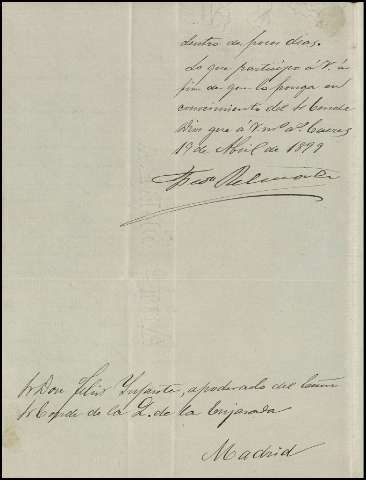 dentro de pocos dias.
Lo que participo á V. á
fin de que lo ponga en
conocimiento del Sr Conde
Dios gue á V. ms as. Caceres
19 de Abril de 1899
Sr Don Felix Infante, apoderado del Excmo
Sr Conde de la T. de la Enjarada
Madrid